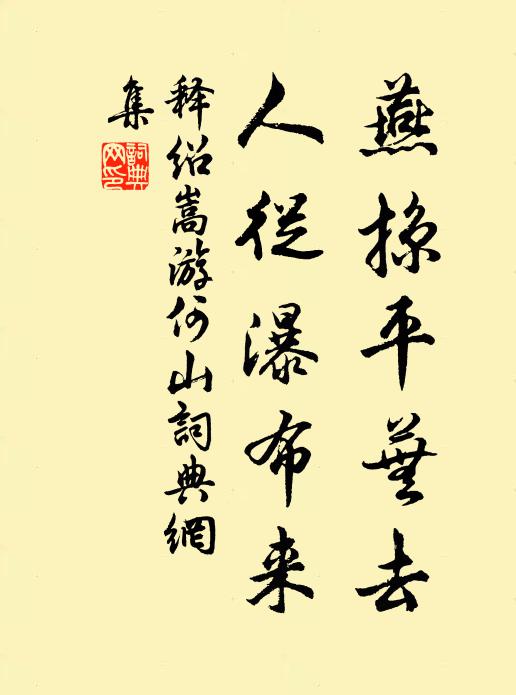 燕掠平蕪去
人從瀑布来
释绍嵩游何山詞典網
集
詞典網印